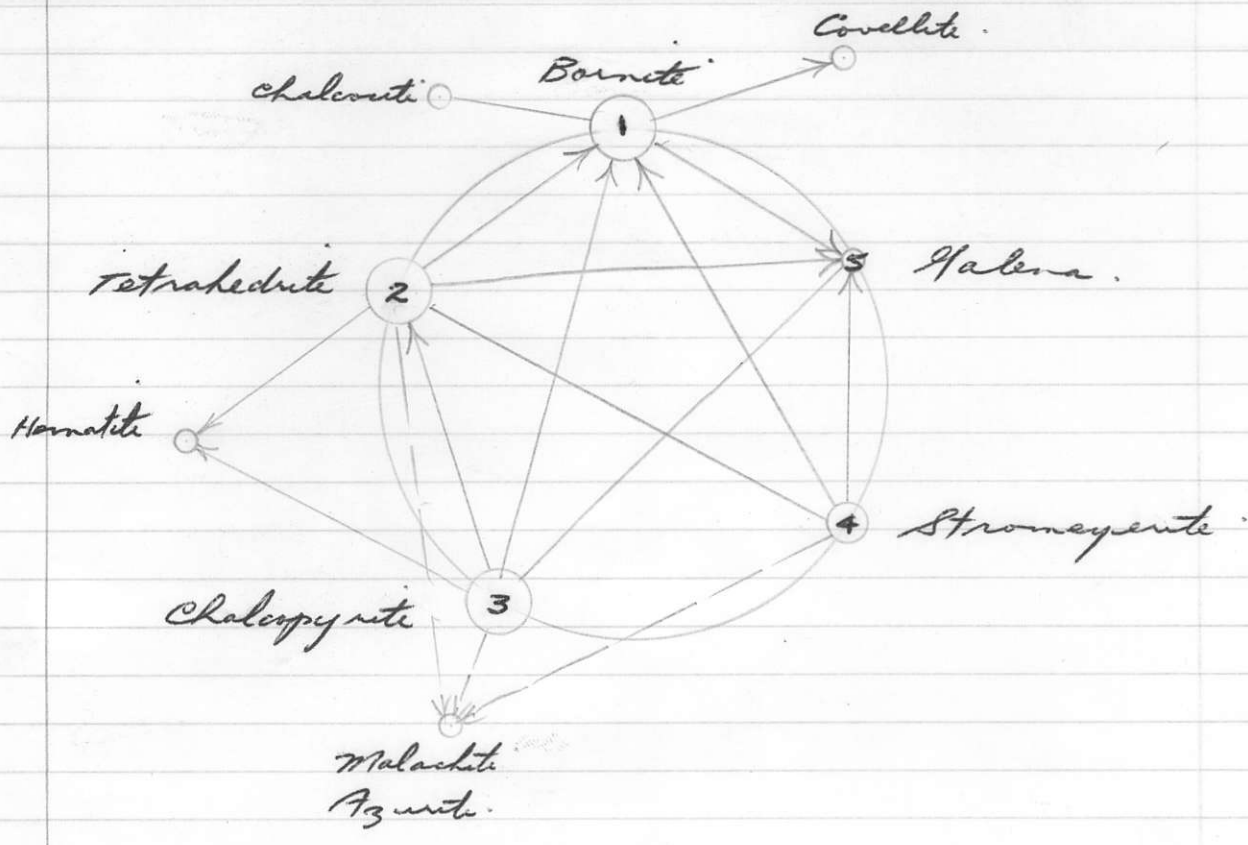 Covellite.
Bornite
Chalcocite
1
Tetrahedrite
2
5
Galena.
Hematite
4
Stromeyerite
3
Chalcopyrite
Malachite
Azurite.